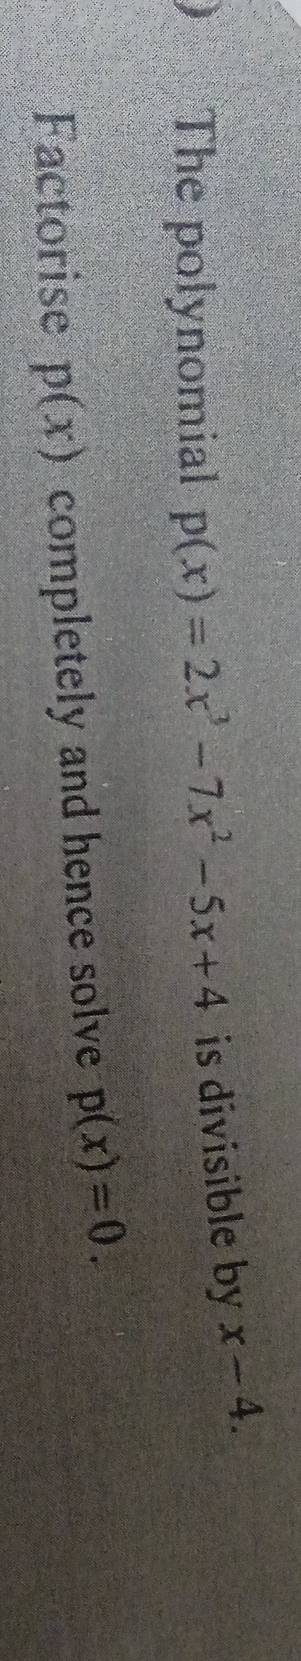 ) The polynomial p(x) = 2x³ - 7x² - 5x + 4 is divisible by x - 4.
Factorise p(x) completely and hence solve p(x) = 0.